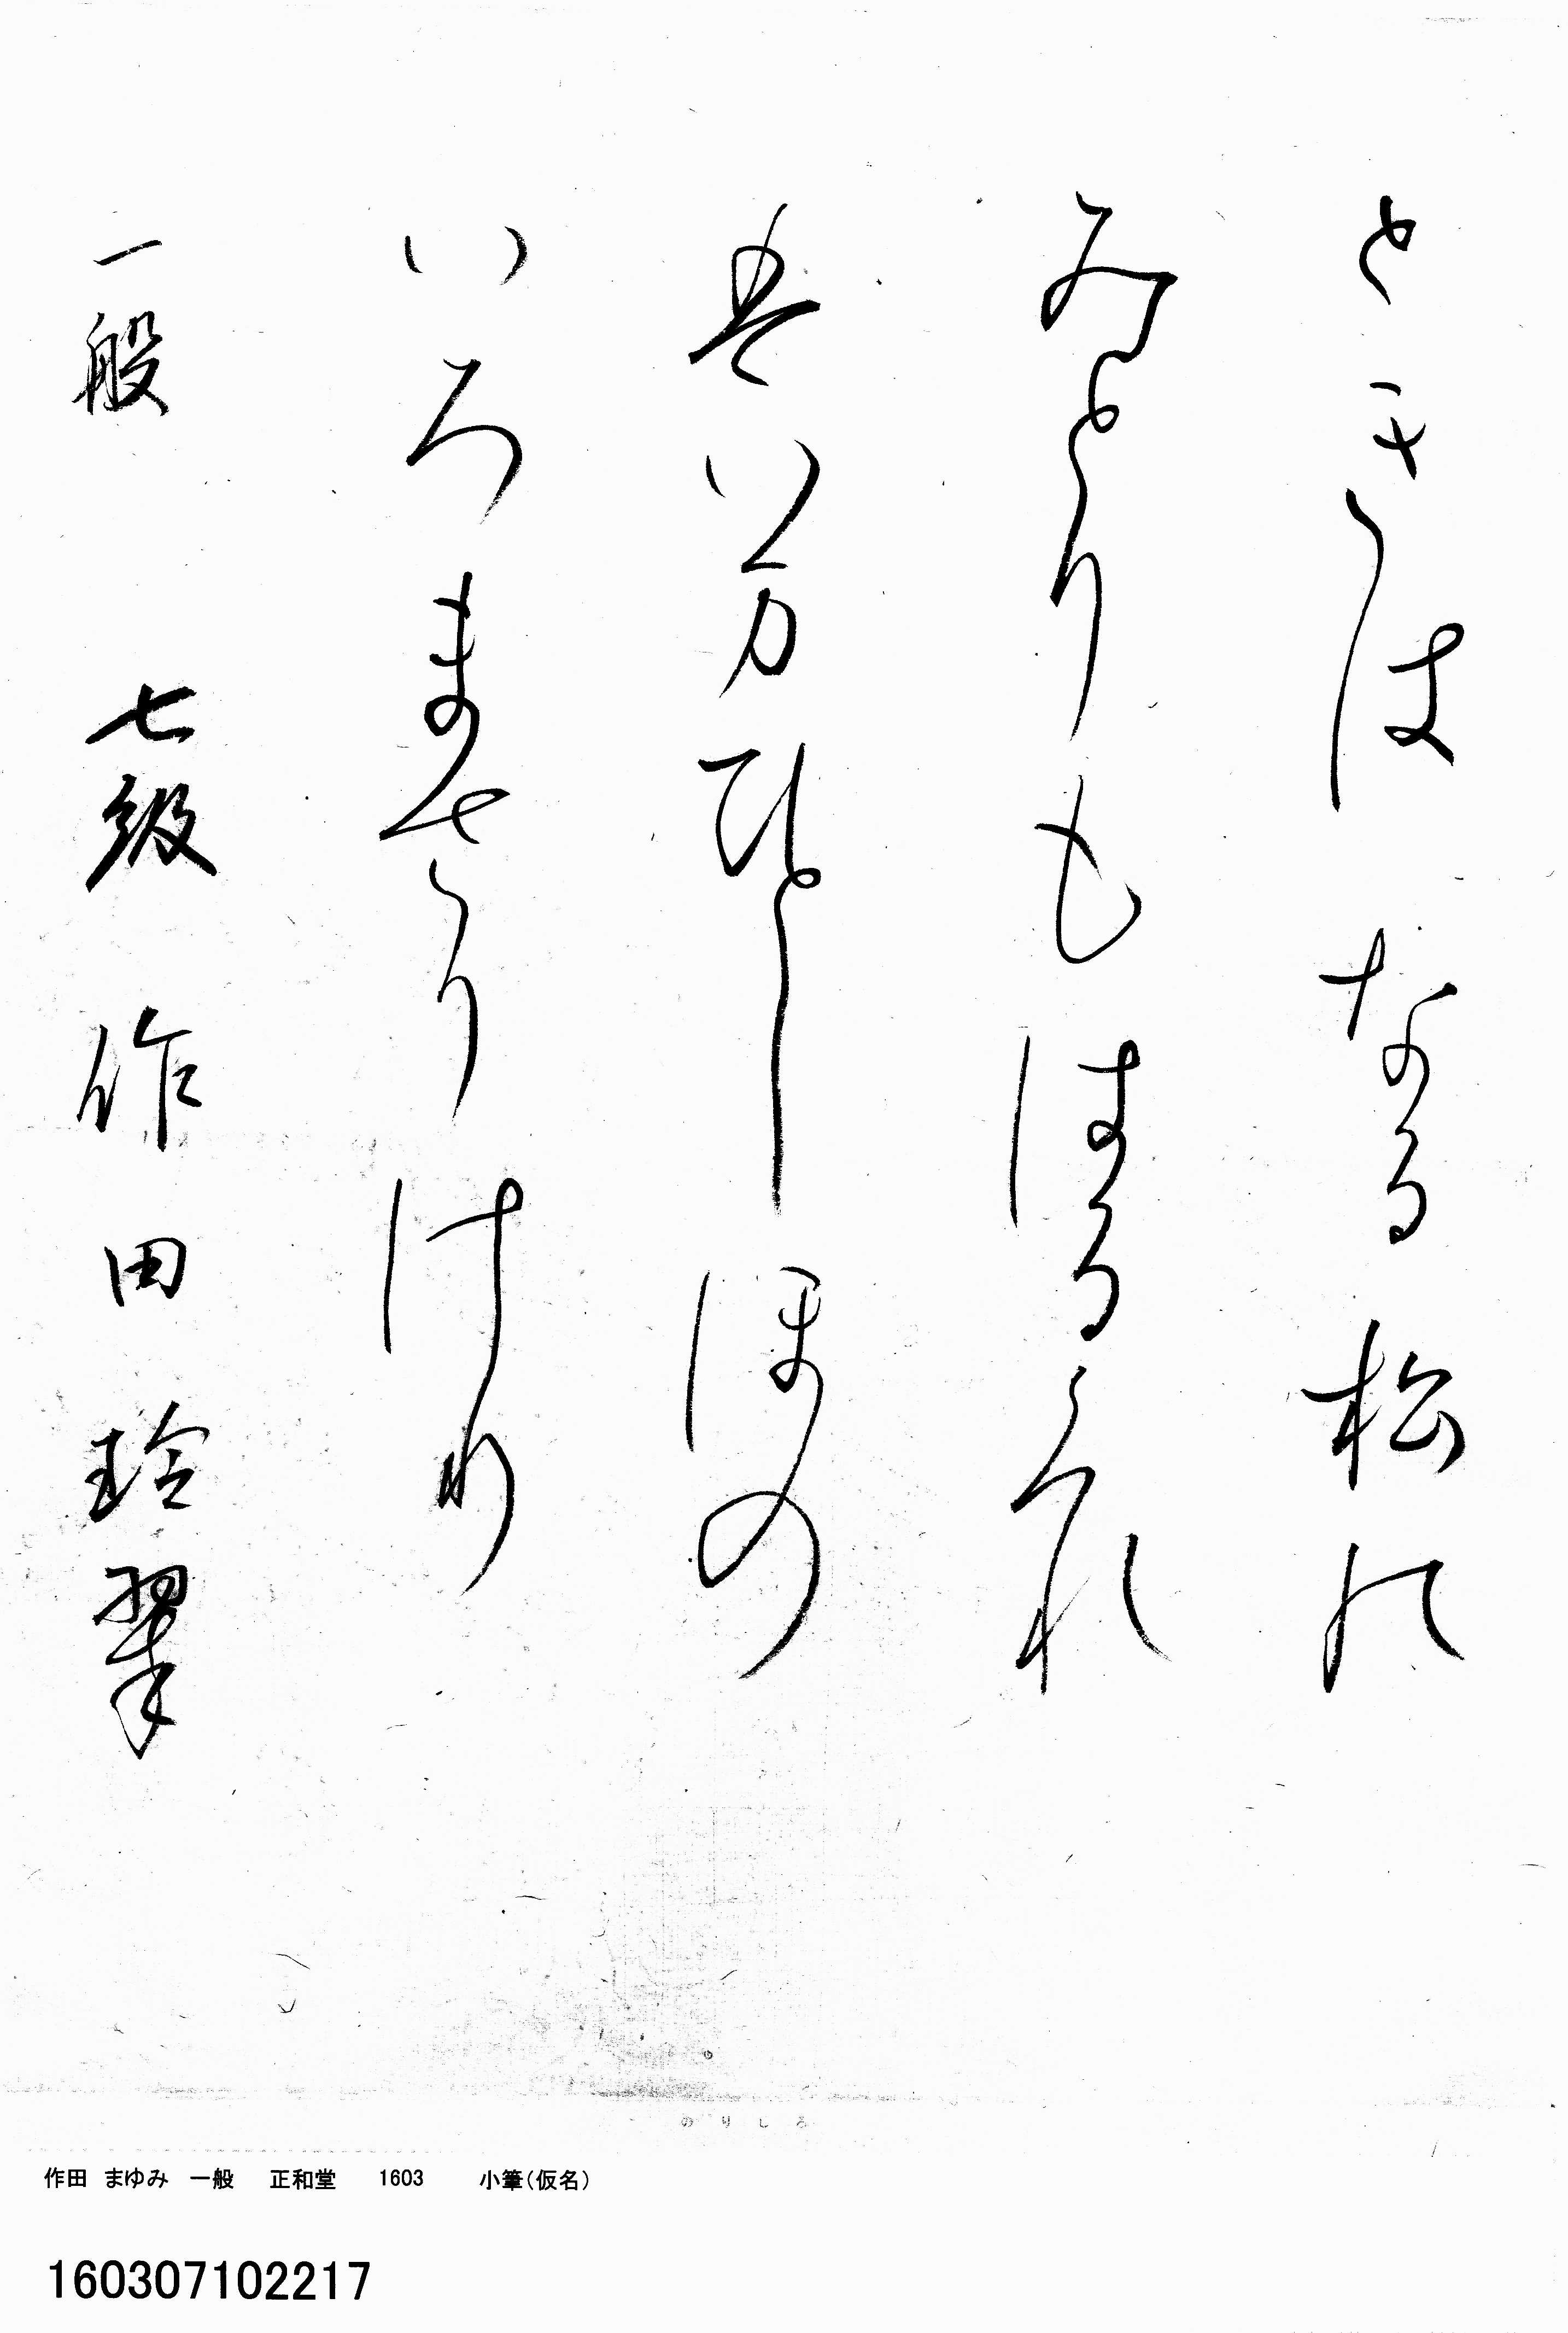 ときはなる松の
みとりもはるくれ
はいまひとしほの
いろまさりけり
一般 七級 作田玲翠
のりしろ
作田 まゆみ 一般 正和堂 1603 小筆(仮名)
160307102217